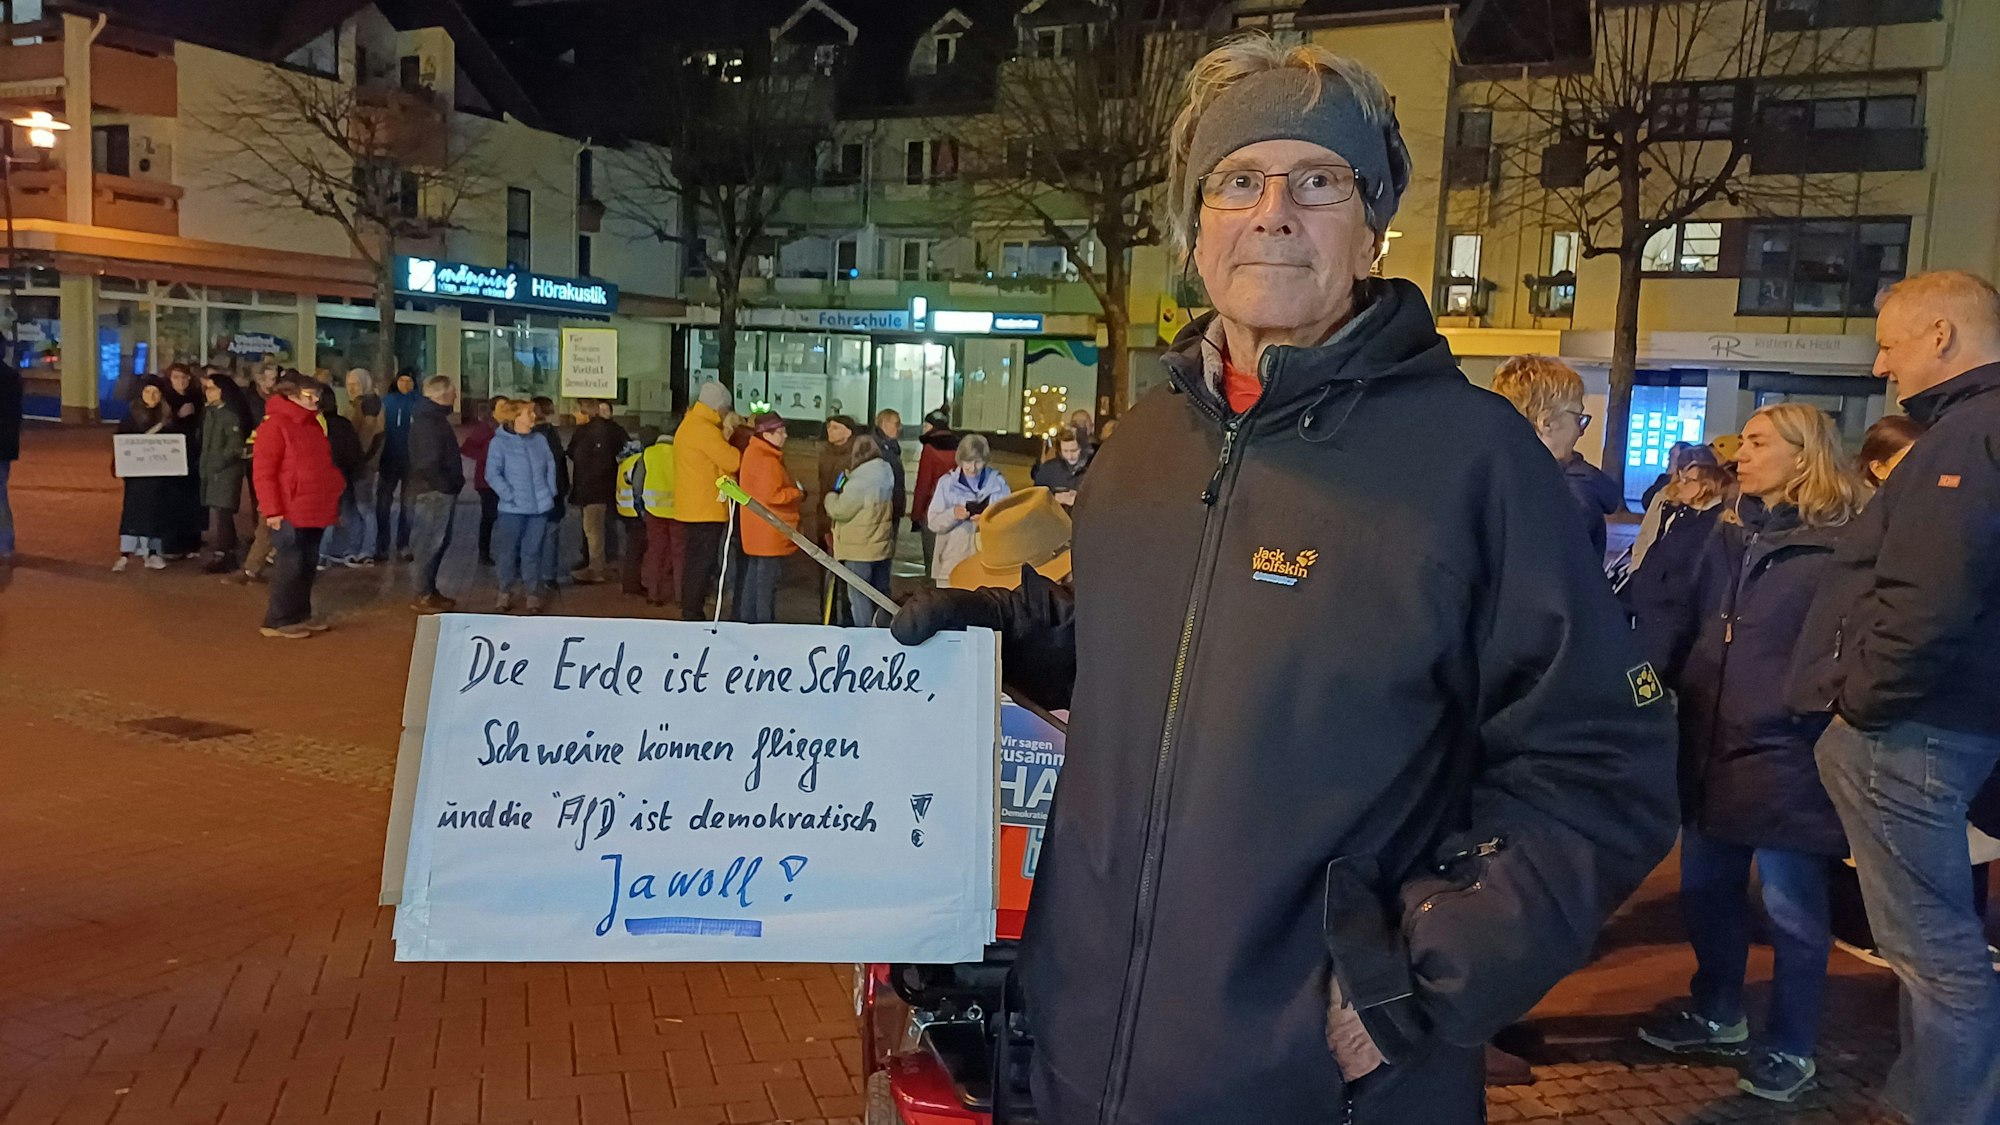 männing
Hörakustik
Fahrschule
Für
Frieden
Freiheit
Vielfalt
Demokratie
Rutten & Heldt
Jack
Wolfskin
Die Erde ist eine Scheibe,
Schweine können fliegen
und die "AfD" ist demokratisch !
Jawoll !
Wir sagen
zusamm
HA
Demokratie